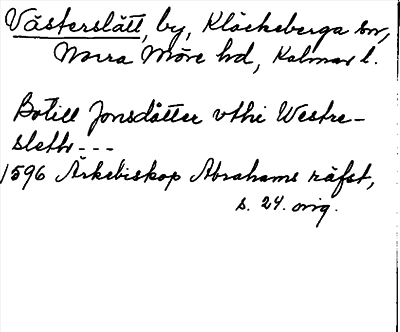 Västerslätt, by, Kläckeberga sn,
Norra Möre hd, Kalmar l.
Botill Jonsdåtter vthi Westre-
sleth ---
1596 Ärkebiskop Abrahams räfst,
s. 24. orig.